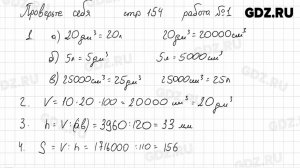 GDZ.RU
Проверьте себя стр 154 работа №1
1 а) 20дм³ = 20л 20дм³ = 20000см³
б) 5л = 5дм³ 5л = 5000см³
в) 25000см³ = 25дм³ 25000см³ = 25л
2. V = 10 · 20 · 100 = 20000 см³ = 20дм³
3. h = V : (ab) = 3960 : 120 = 33 мм
4. S = V : h = 1716000 : 110 = 156